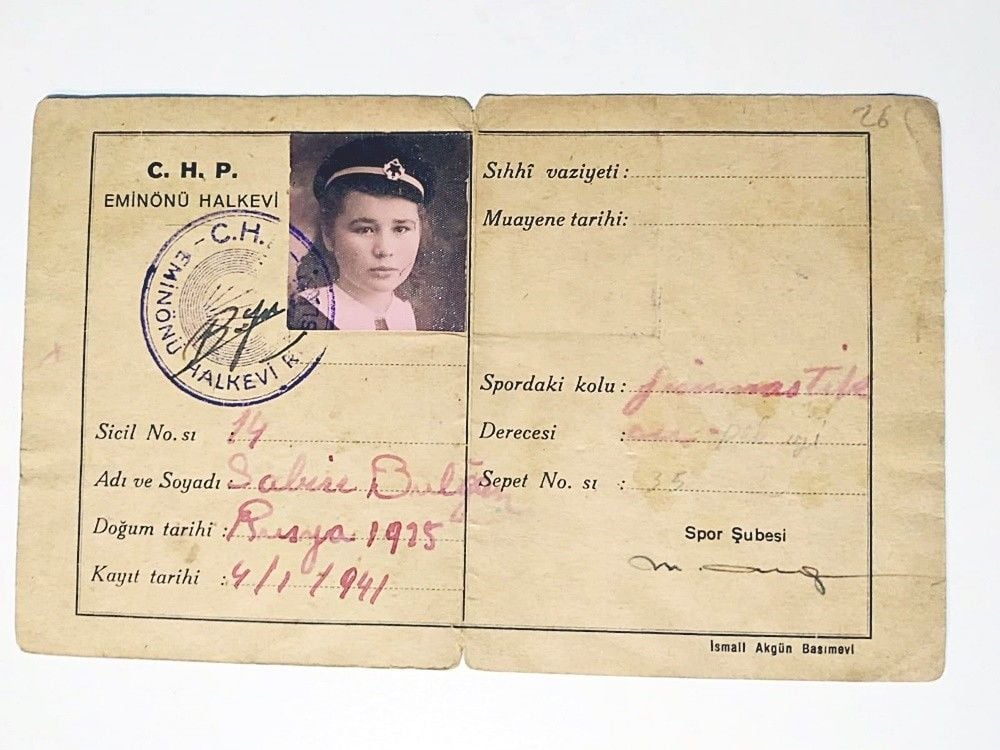 C. H. P.
EMİNÖNÜ HALKEVİ
C.H.
EMİNÖNÜ HALKEVİ R
Sicil No. sı : 14
Adı ve Soyadı : Sabire
Doğum tarihi : Rusya 1925
Kayıt tarihi : 4/1/941
26
Sıhhî vaziyeti :
Muayene tarihi:
Spordaki kolu : Jimnastik
Derecesi : pek iyi
Sepet No. sı : 35
Spor Şubesi
İsmail Akgün Basımevi